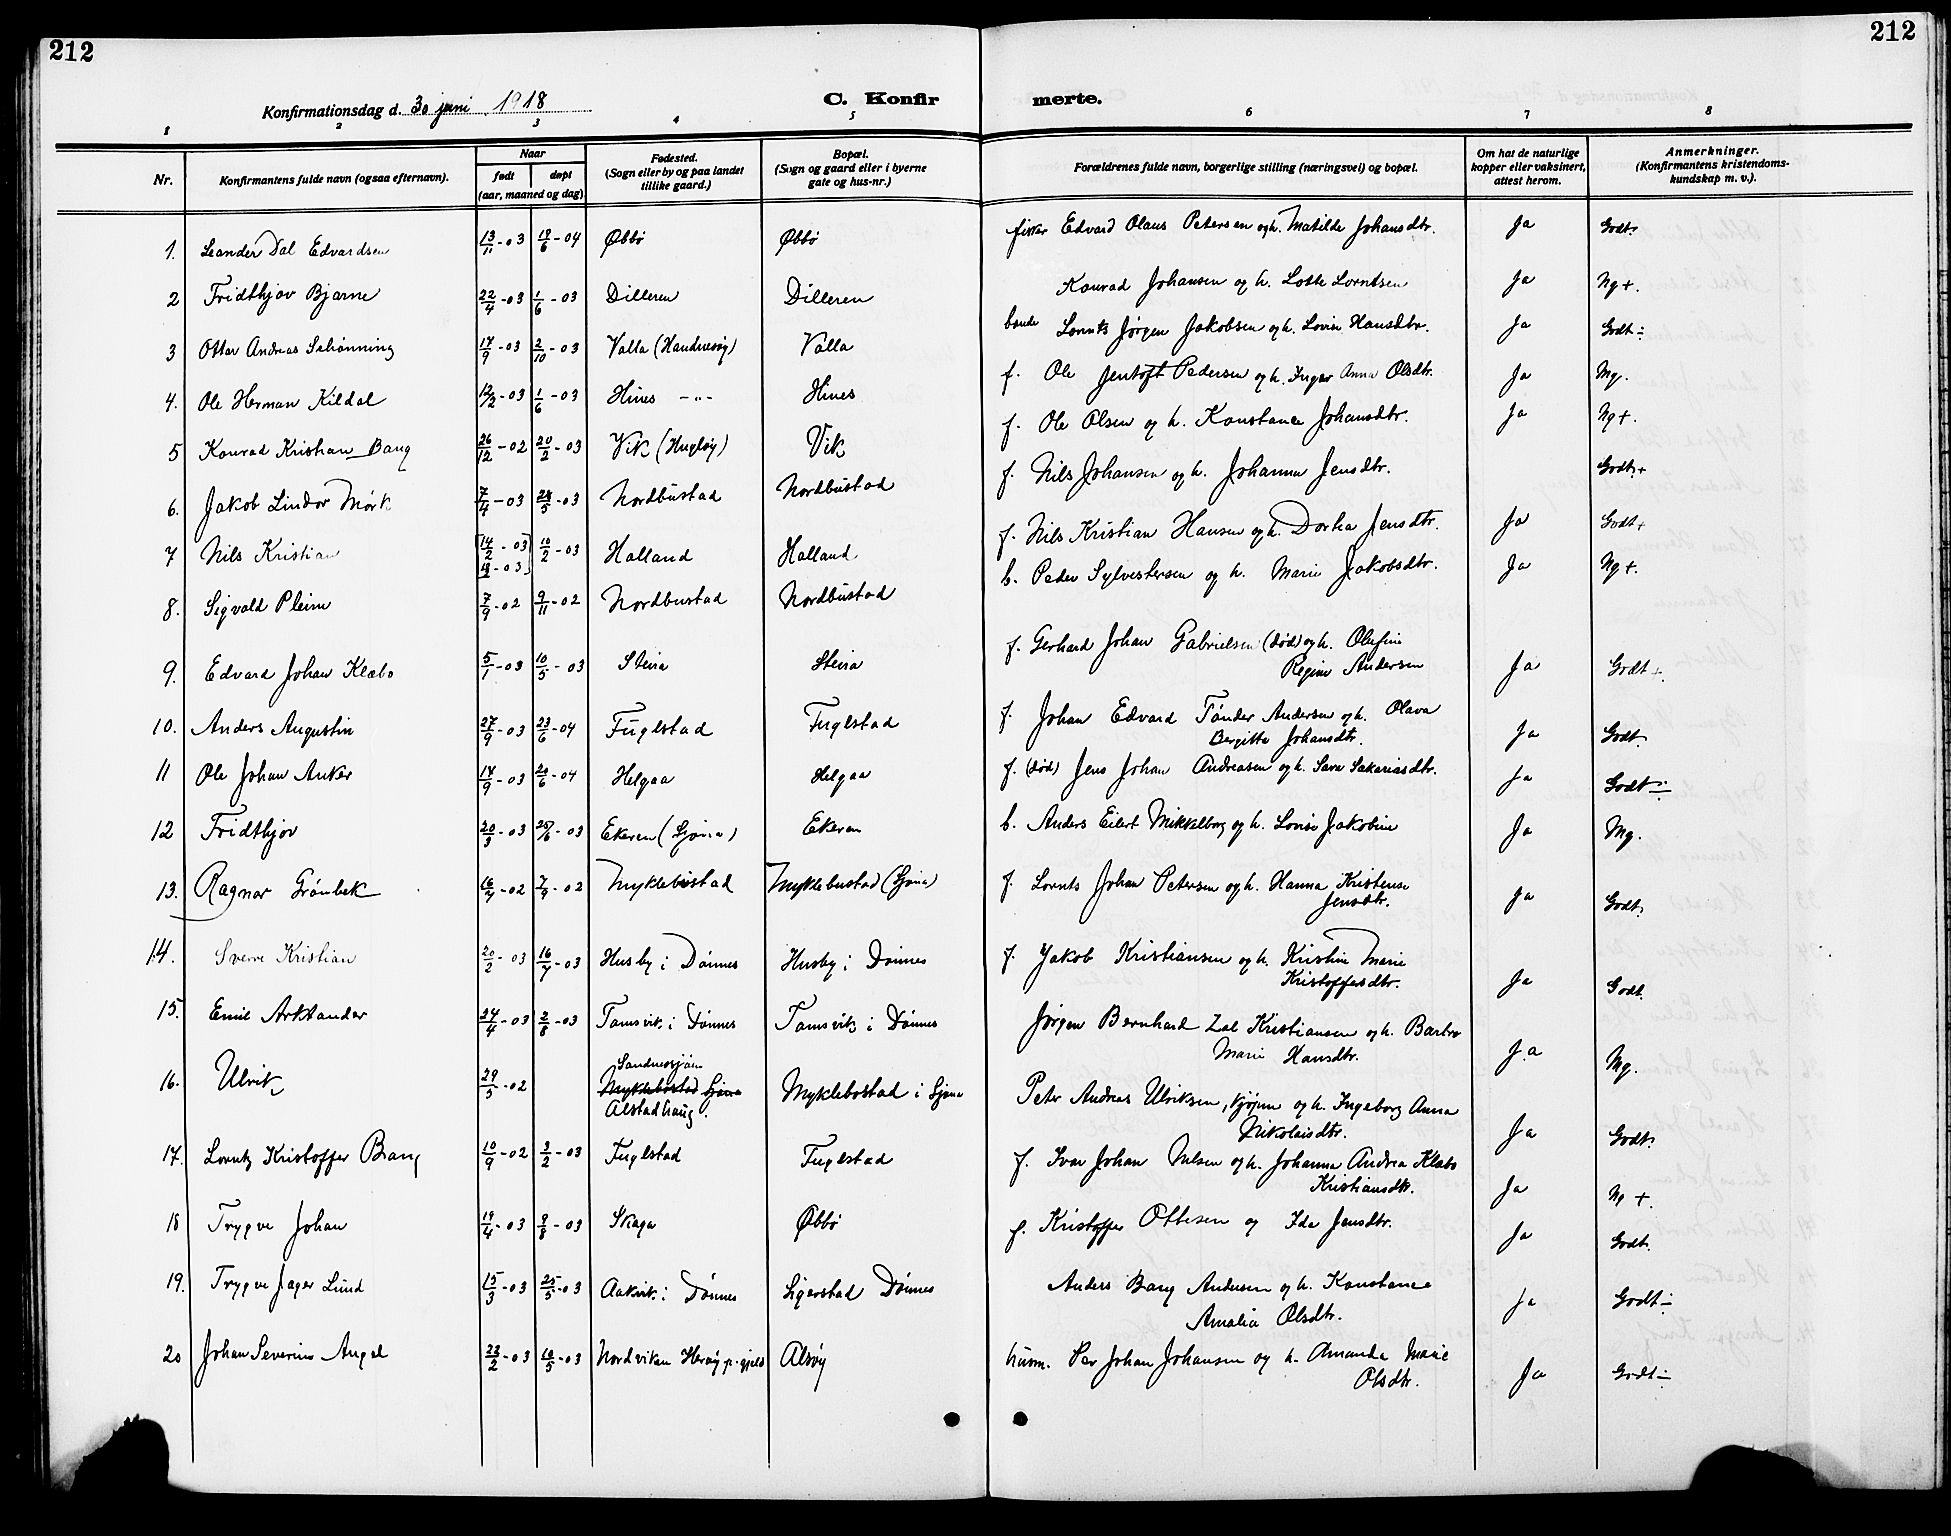 212
212
Konfirmationsdag d. 30 juni 1918
C. Konfir
merte.
1 2 3 4 5 6 7 8
Nr.
Konfirmantens fulde navn (ogsaa efternavn).
Naar
født
døpt
(aar, maaned og dag)
Fødested.
(Sogn eller by og paa landet
tillike gaard.)
Bopæl.
(Sogn og gaard eller i byerne
gate og hus-nr.)
Forældrenes fulde navn, borgerlige stilling (næringsvei) og bopæl.
Om hat de naturlige
kopper eller vaksinert,
attest herom.
Anmerkninger.
(Konfirmantens kristendoms-
kundskap m. v.).
1. Leander Dal Edvardsen 13/11-03 18/6-04 Øbbø Øbbø fisker Edvard Olaus Petersen og h. Matilde Johansdtr. Ja Godt
2 Fridthjov Bjarne 22/4-03 1/6-03 Dilleren Dilleren Konrad Johansen og h. Lotte Lorntsen Ja Ng+.
3 Ottar Andreas Schønning 17/9-03 2/10-03 Valla (Handnesøy) Valla bonde Lornts Jørgen Jakobsen og h. Lovise Hansdtr. Ja Godt÷
4. Ole Herman Kildal 12/2-03 1/6-03 Hines -"- Hines f. Ole Jentoft Pedersen og h. Inger Anna Olsdtr. Ja Mg.
5 Konrad Kristian Bang 26/12-02 20/2-03 Vik (Hugløy) Vik f. Ole Olsen og h. Konstance Johansdtr. Ja Ng+.
6. Jakob Lindor Mørk 7/4-03 28/5-03 Nordbustad Nordbustad f. Nils Johansen og h. Johanna Jensdtr. Godt+
7 Nils Kristian 14/2-03 10/2-03 Halland Halland f. Nils Kristian Hansen og h. Dortea Jensdtr. Ja Godt+
8. Sigvald Pleim 7/9-02 9/11-02 Nordbustad Nordbustad b. Peder Sylvestersen og h. Marie Jakobsdtr. Ja Ng+.
9. Edvard Johan Klæbo 5/1-03 10/5-03 Steira Steira f. Gerhard Johan Gabrielsen (død) og h. Olufine
Regine Andersen Ja Godt+.
10. Anders Augustin 27/9-03 23/6-04 Fuglstad Fuglstad f. Johan Edvard Tønder Andersen og h. Olava
Bergitte Johansdtr. Ja Godt.
11 Ole Johan Anker 17/9-03 20/6-04 Helgaa Helgaa f. (død) Jens Johan Andreasen og h. Sara Sakariasdtr. Ja Godt÷
12 Fridthjov 20/3-03 25/6-03 Ekeren (Sjona) Ekeren b. Anders Eilert Mikkelborg og h. Lovise Jakobine Ja Mg.
13. Ragnar Grønbek 16/7-02 7/9-02 Myklebustad Myklebustad (Sjona) f. Lornts Johan Petersen og h. Hanna Kristense
Jensdtr. Ja Godt.
14. Sverre Kristian 20/2-03 16/7-03 Husby i Dønnes Husby i Dønnes f. Jakob Kristiansen og h. Kristine Marie
Kristoffersdtr. Ja Godt.
15. Emil Arktander 24/4-03 2/8-03 Tamsvik i Dønnes Tamsvik i Dønnes Jørgen Bernhard Zal Kristiansen og h. Barbro
Marie Hansdtr. Ja Mg.
16. Ulrik 29/5-02 Sandnessjøen
Myklebostad Sjona
Alstadhaug. Myklebostad i Sjona Peter Andreas Ulriksen, kjøpm og h. Ingeborg Anna
Nikolaisdtr. Ja Godt
17. Lorntz Kristoffer Bang 10/9-02 2/2-03 Fuglstad Fuglstad f. Ivar Johan Nilsen og h. Johanna Andrea Klæbo
Kristiansdtr. Ja Ng +.
18 Trygve Johan 19/4-03 9/8-03 Skaga Øbbø f. Kristoffer Ottesen og Ida Jensdtr. Ja Godt.
19. Trygve Jager Lund 15/3-03 25/5-03 Aakvik i Dønnes Ligerstad Dønnes Anders Bang Andersen og h. Konstance
Amalia Olsdtr. Ja Godt÷
20 Johan Severin Angel 23/2-03 10/5-03 Nordviken Herøy p.gjeld Alsøy husm. Per Johan Johansen og h. Amanda Marie
Olsdtr. Ja Godt÷